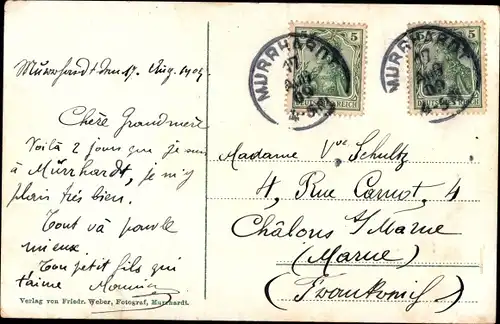 Murrhardt den 17. Aug. 1909.
Chère Grandmère
Voilà 2 jours que je suis
à Mürrhardt, je m'y
plais très bien.
Tout va pour le
mieux
Ton petit fils qui
t'aime Maurice
Verlag von Friedr. Weber, Fotograf, Murrhardt.
MURRHARDT
17
AUG
09
5
DEUTSCHES REICH
MURRHARDT
17
AUG
09
5
DEUTSCHES REICH
Madame Vve Schultz
4, Rue Carnot, 4
Châlons s/ Marne
(Marne)
(Frankreich)